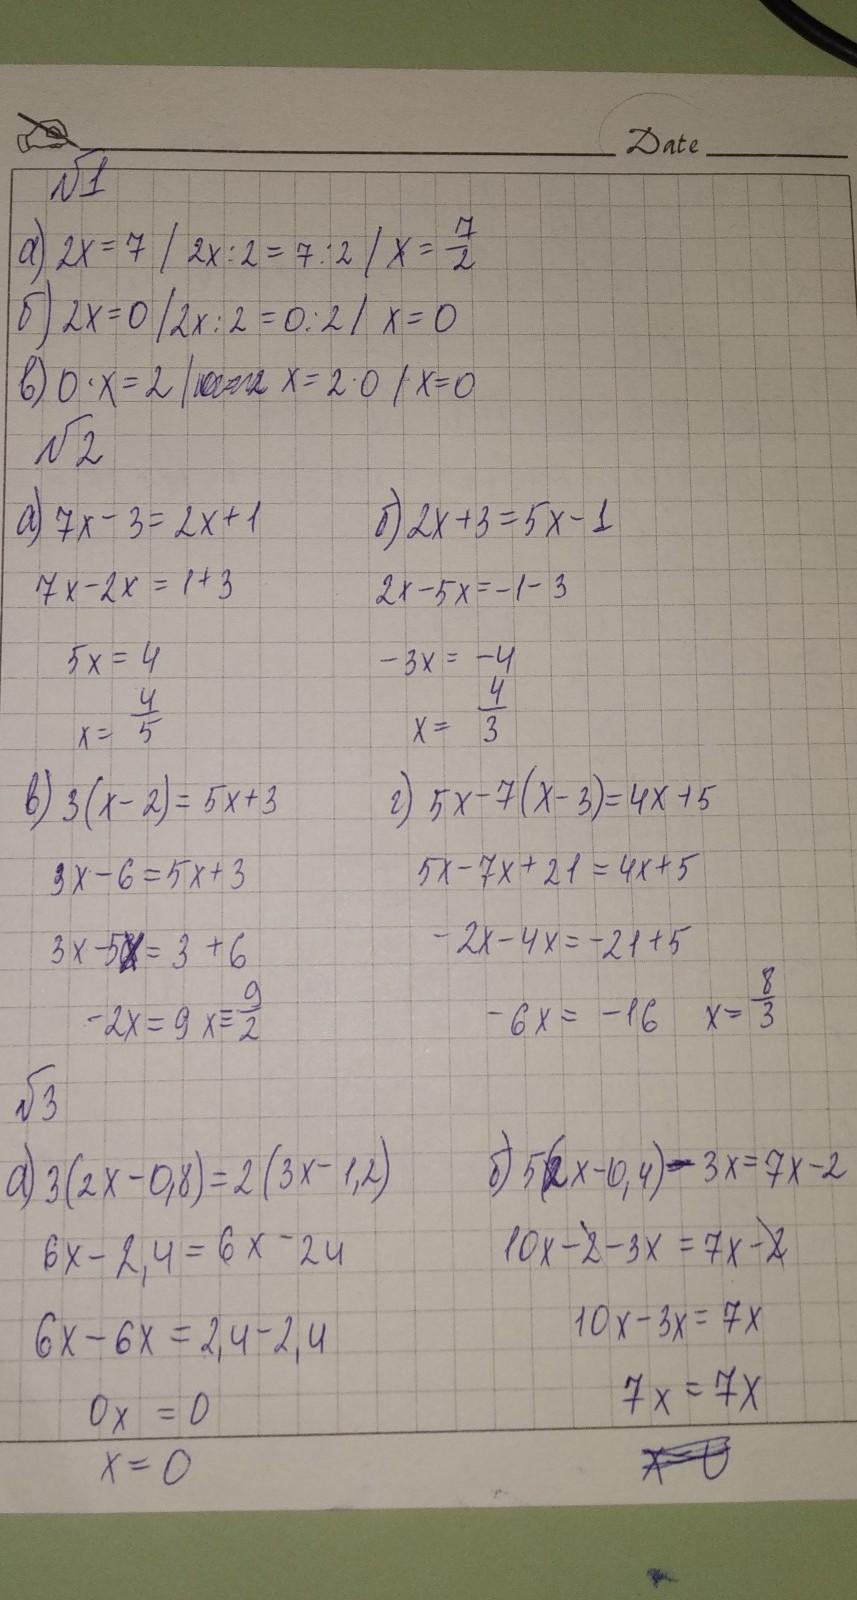 Date
№1
а) 2x = 7 / 2x : 2 = 7 : 2 / x = 7/2
б) 2x = 0 / 2x : 2 = 0 : 2 / x = 0
в) 0 · x = 2 / x = 2 · 0 / x = 0
№2
а) 7x - 3 = 2x + 1
7x - 2x = 1 + 3
5x = 4
x = 4/5
б) 2x + 3 = 5x - 1
2x - 5x = -1 - 3
-3x = -4
x = 4/3
в) 3(x - 2) = 5x + 3
3x - 6 = 5x + 3
3x - 5x = 3 + 6
-2x = 9 x = -9/2
г) 5x - 7(x - 3) = 4x + 5
5x - 7x + 21 = 4x + 5
-2x - 4x = -21 + 5
-6x = -16 x = 8/3
№3
а) 3(2x - 0,8) = 2(3x - 1,2)
6x - 2,4 = 6x - 24
6x - 6x = 2,4 - 2,4
0x = 0
x = 0
б) 5(2x - 0,4) - 3x = 7x - 2
10x - 2 - 3x = 7x - 2
10x - 3x = 7x
7x = 7x